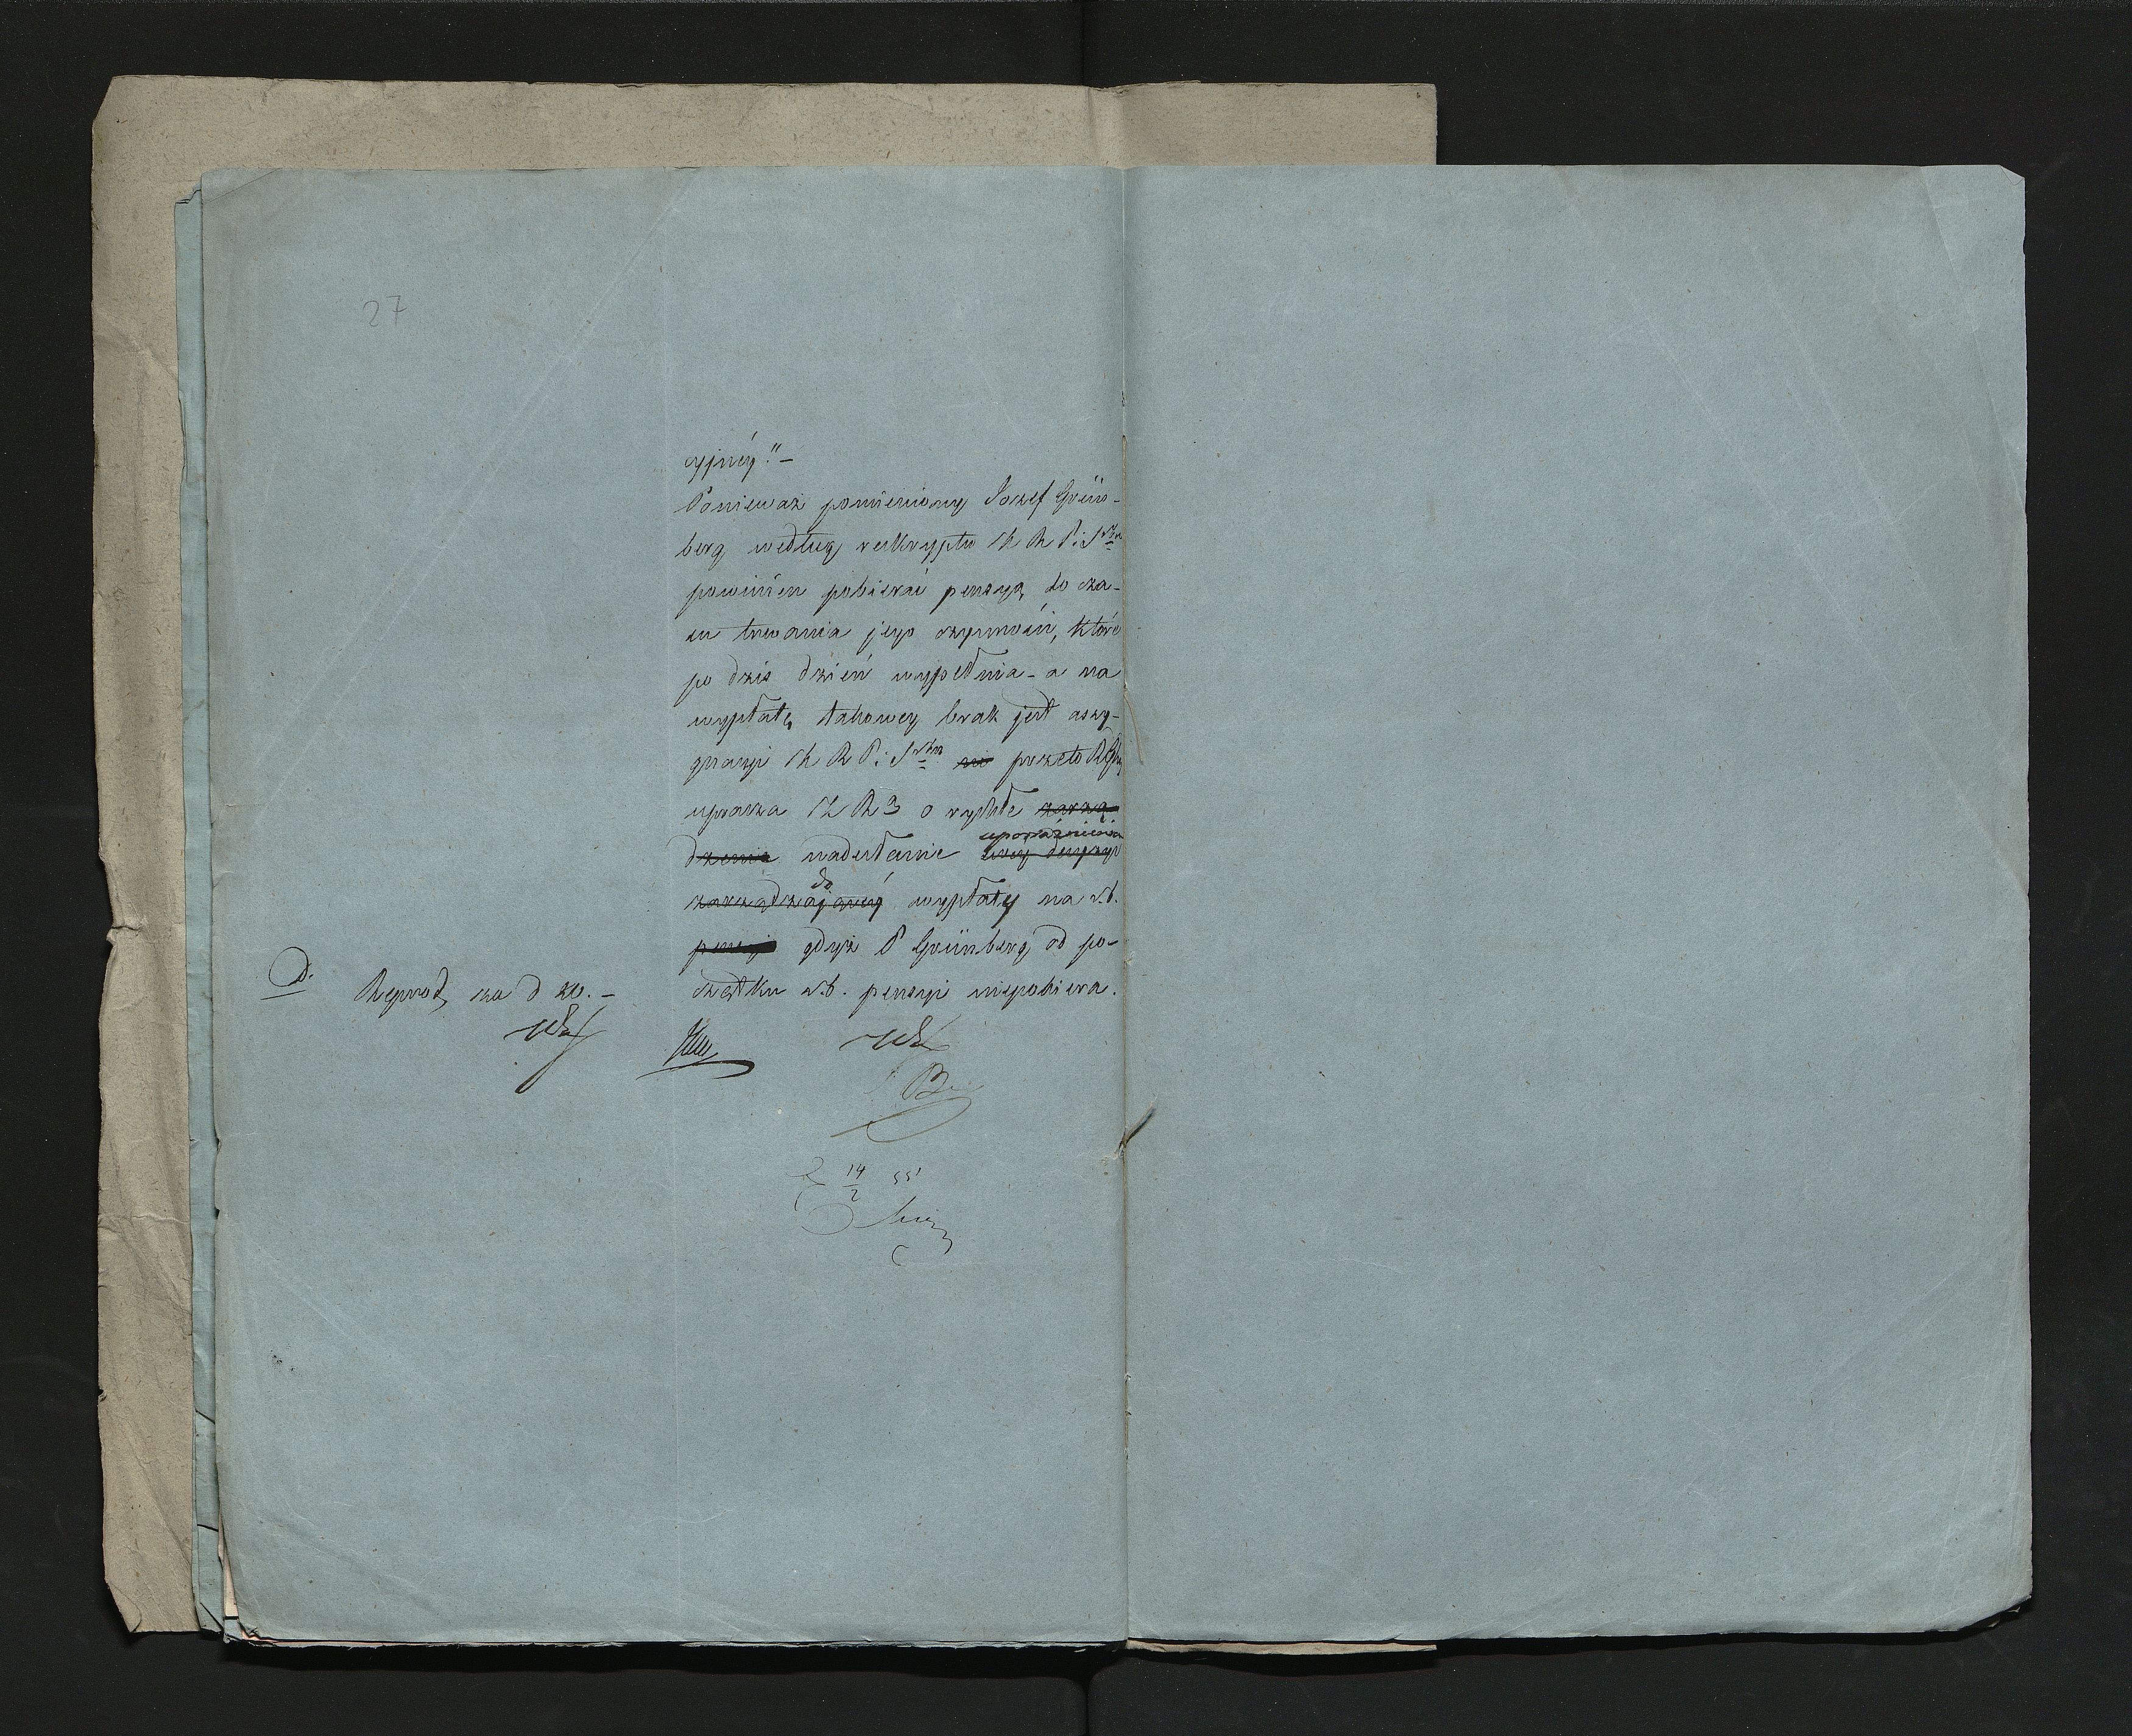 27
cyjnéj."—
Ponieważ pomieniony Jozef Grün-
berg według reskryptu K R P. i S
powinien pobierać pensyą do cza-
su trwania jego czynności, które
po dziś dzień wypełnia - a na
wypłatę takowey brak jest assy-
gnacyi K R P. i S przeto
uprasza K R o rychłe zarzą-
dzenie nadesłanie upoważnienia
zarządzającéj do wypłaty na r.b.
pensyi gdyż P Grünberg od po-
czątku r.b. pensyi niepobiera.
D.
Reprod, za d 20. –
14/2 55